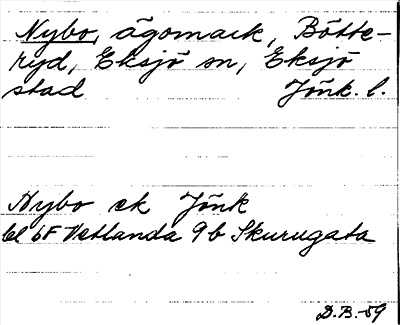 Nybo, ägomark, Bötte-
ryd, Eksjö sn, Eksjö
stad Jönk. l.
Nybo ek Jönk
bl 6F Vetlanda 9b Skurugata
D.B.-59